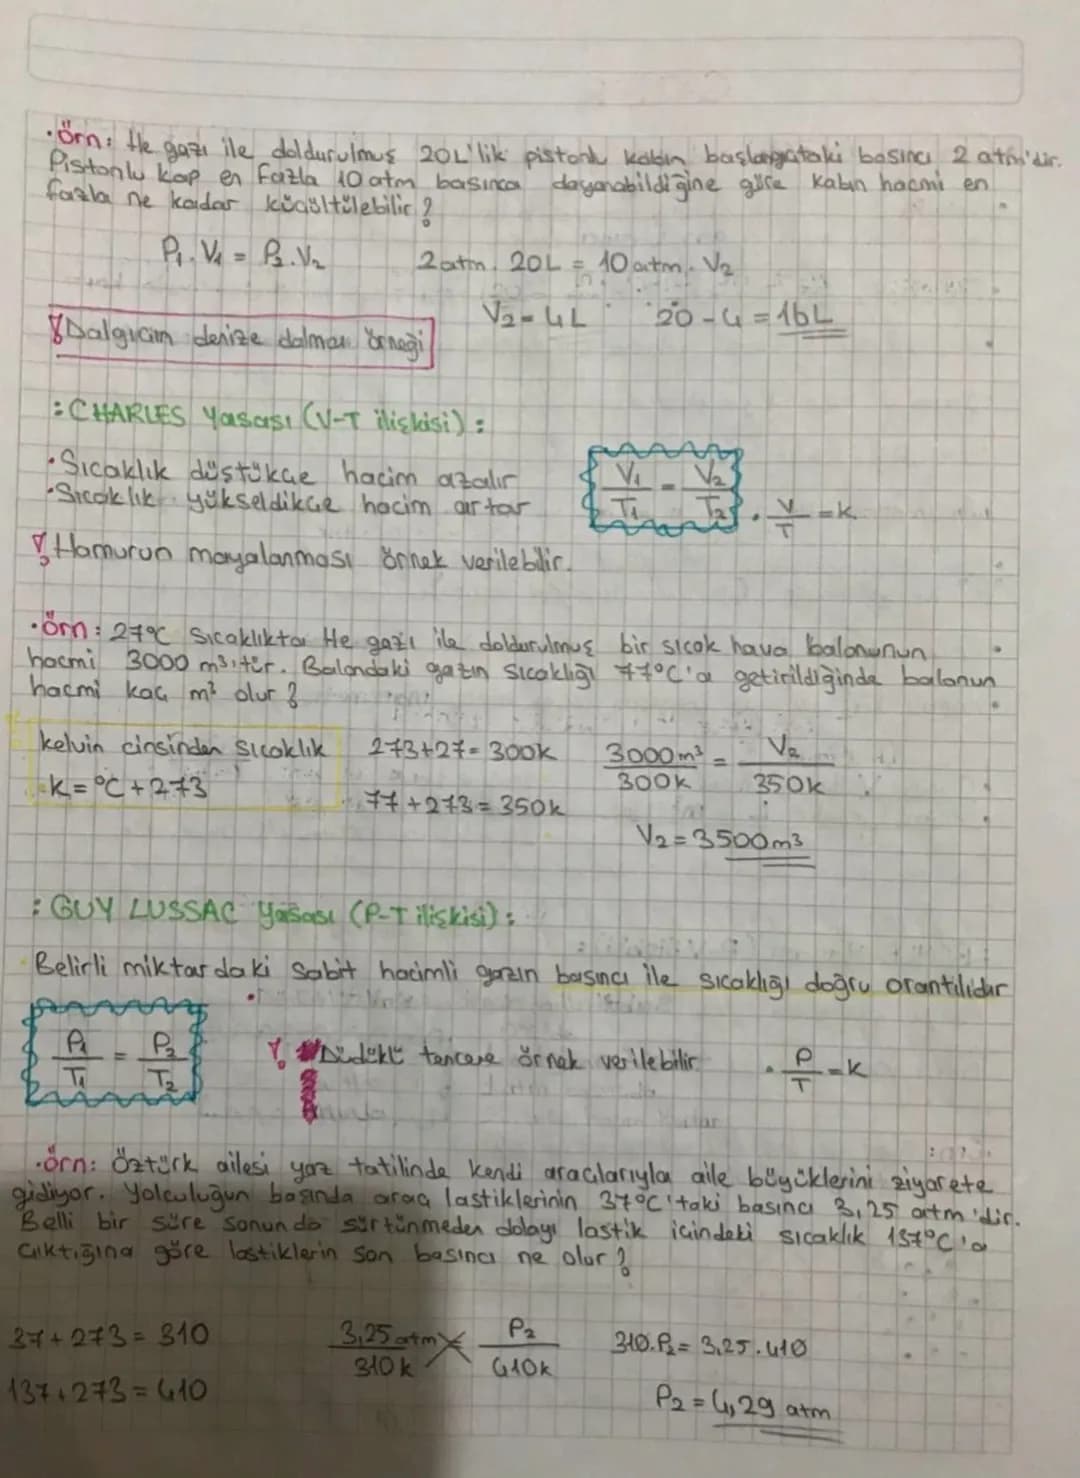 • Örn: He gazı ile doldurulmuş 20L'lik pistonlu kabın başlangıçtaki basıncı 2 atm'dir.
Pistonlu kap en fazla 10 atm basınca dayanabildiğine göre kabın hacmi en
fazla ne kadar küçültülebilir?
P₁.V₁ = P₂.V₂ 2 atm. 20L = 10 atm. V₂
V₂ = 4L 20 - 4 = 16L
! Dalgıcın denize dalması örneği
: CHARLES Yasası (V-T ilişkisi) :
• Sıcaklık düştükçe hacim azalır
• Sıcaklık yükseldikçe hacim artar
V₁/T₁ = V₂/T₂ • V/T = k
! Hamurun mayalanması örnek verilebilir.
• Örn: 27°C sıcaklıkta He gazı ile doldurulmuş bir sıcak hava balonunun
hacmi 3000 m³'tür. Balondaki gazın sıcaklığı 77°C'a getirildiğinde balonun
hacmi kaç m³ olur?
kelvin cinsinden sıcaklık 273+27= 300K 3000m³/300k = V₂/350k
K = °C + 273
77+273 = 350k
V₂ = 3500m³
: GUY LUSSAC Yasası (P-T ilişkisi) :
Belirli miktardaki sabit hacimli gazın basıncı ile sıcaklığı doğru orantılıdır
P₁/T₁ = P₂/T₂ ! Düdüklü tencere örnek verilebilir. • P/T = k
• örn: Öztürk ailesi yaz tatilinde kendi araçlarıyla aile büyüklerini ziyarete
gidiyor. Yolculuğun başında araç lastiklerinin 37°C'taki basıncı 3,25 atm'dir.
Belli bir süre sonunda sürtünmeden dolayı lastik içindeki sıcaklık 137°C'a
çıktığına göre lastiklerin son basıncı ne olur?
37+273 = 310 3,25 atm/310k = P₂/410k 310.P₂ = 3,25.410
137+273 = 410
P₂ = 4,29 atm